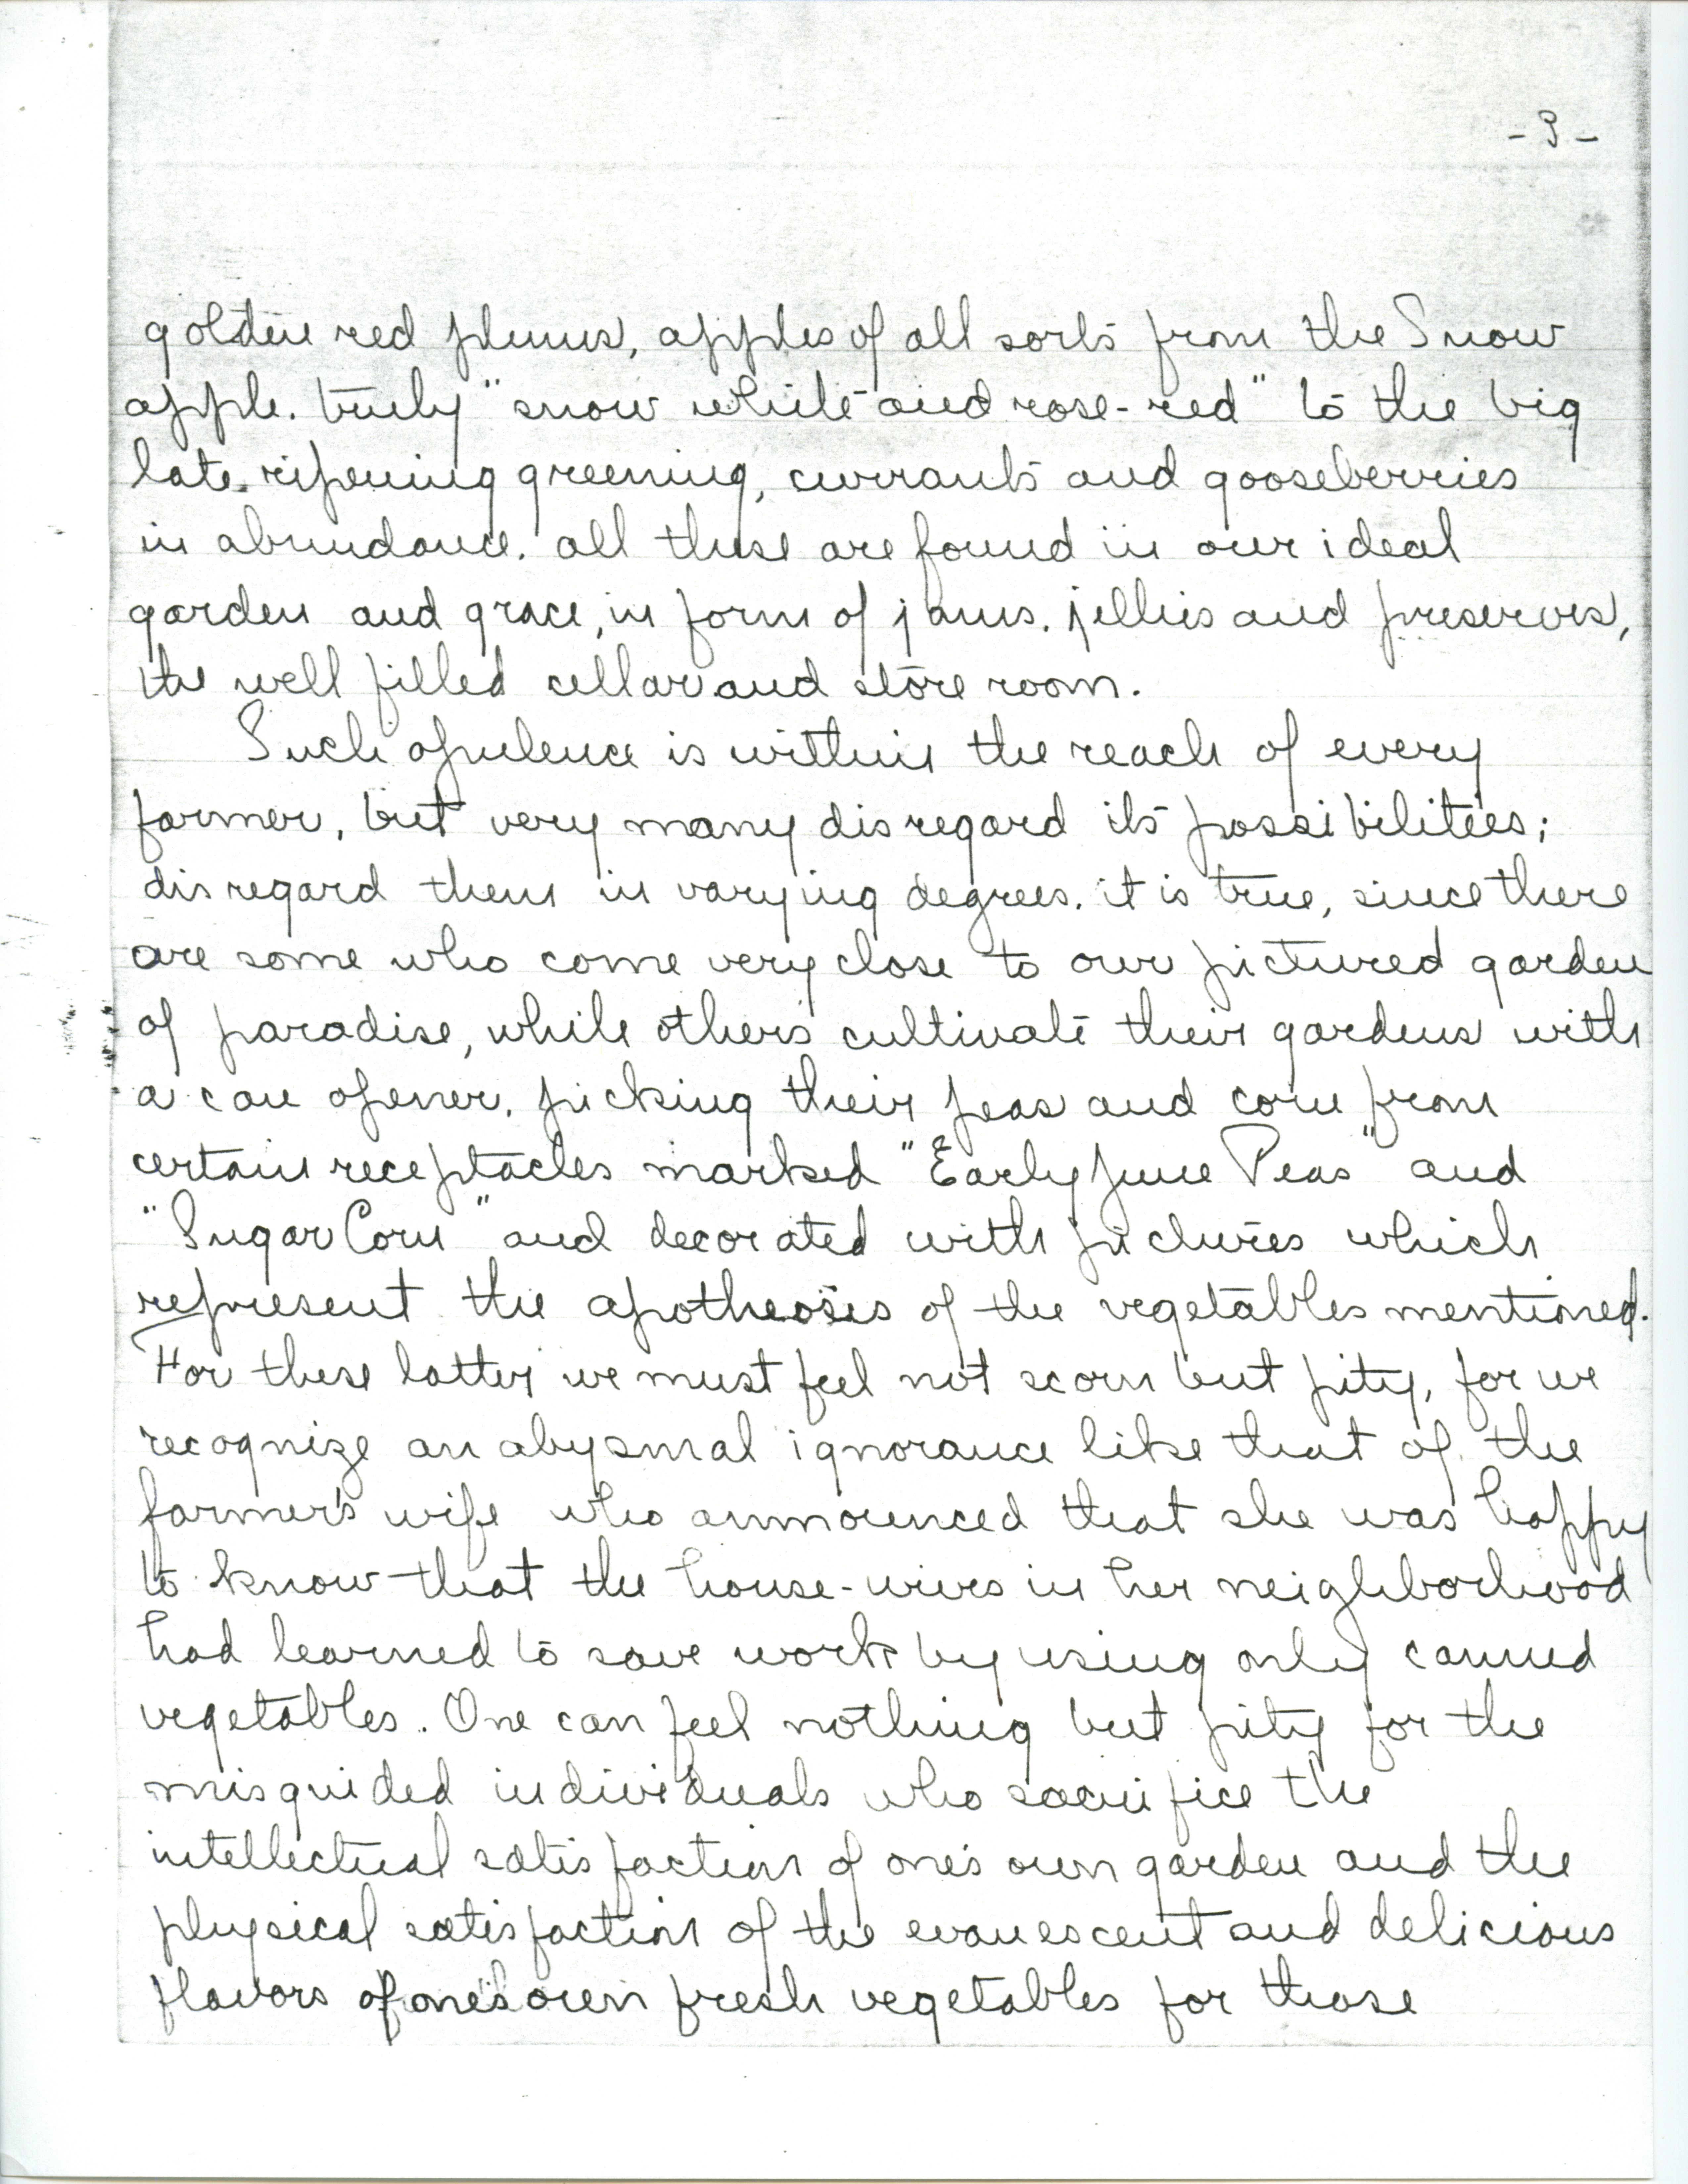 - 3 -
golden red plums, apples of all sorts from the Snow
apple, truly "snow white and rose-red" to the big
late ripening greening, currants and gooseberries
in abundance. all these are found in our ideal
garden and grace, in form of jams, jellies and preserves,
the well filled cellar and store room.
Such opulence is within the reach of every
farmer, but very many disregard its possibilities;
disregard them in varying degrees, it is true, since there
are some who come very close to our pictured garden
of paradise, while others cultivate their gardens with
a can opener, picking their peas and corn from
certain receptacles marked "Early June Peas" and
"Sugar Corn" and decorated with pictures which
represent the apotheosis of the vegetables mentioned.
For these latter we must feel not scorn but pity, for we
recognize an abysmal ignorance like that of the
farmer's wife who announced that she was happy
to know that the house-wives in her neighborhood
had learned to save work by using only canned
vegetables. One can feel nothing but pity for the
misguided individuals who sacrifice the
intellectual satisfaction of one's own garden and the
physical satisfaction of the evanescent and delicious
flavors of one's own fresh vegetables for those